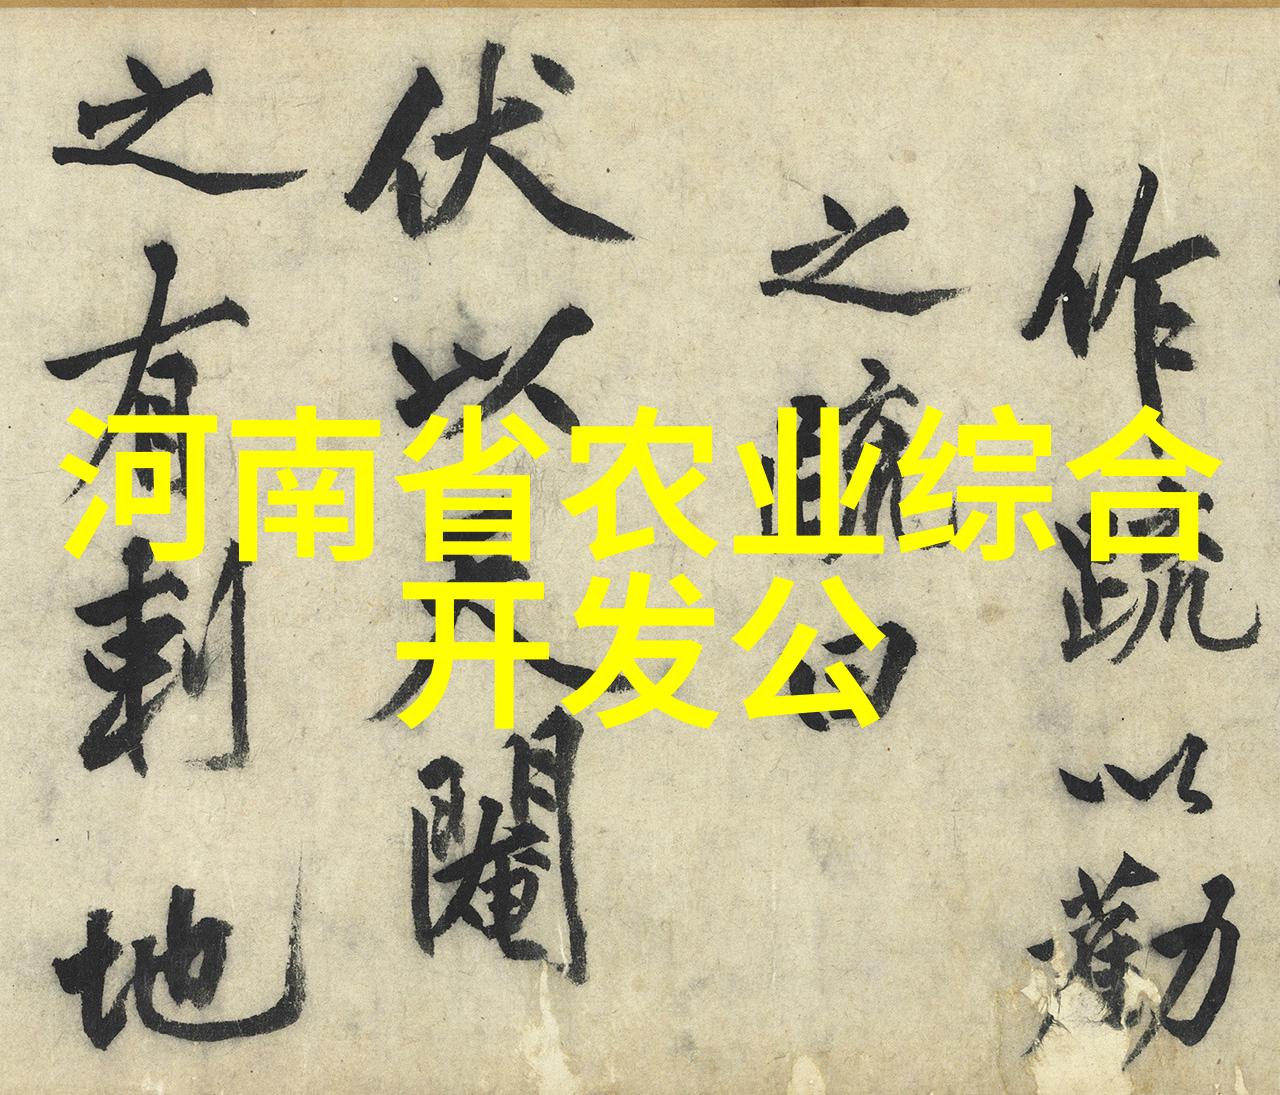 河南省农业综合
开发公
作疏以勸
之疏曰
伏以
之有剌地